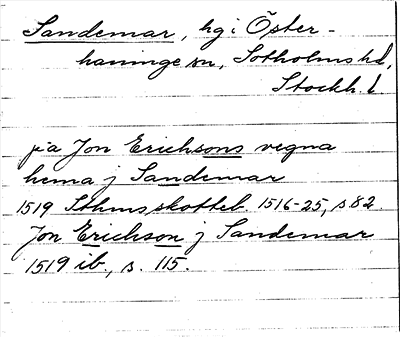 Sandemar, hg i Öster-
haninge sn, Sotholms hd,
Stockh. l.
pa Jon Erichsons vegna
hema j Sandemar
1519 Sthms skotteb. 1516-25, s 82.
Jon Erichson j Sandemar
1519 ib., s. 115.